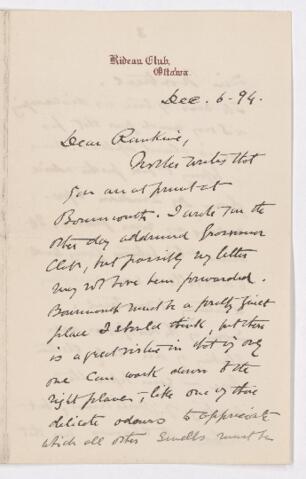 Rideau Club,
Ottawa.
Dec. 6. 94.
Dear Rankine,
Mother writes that
you are at present at
Bournemouth. I wrote you the
other day addressed Grosvenor
Club, but possibly my letter
may not have been forwarded.
Bournemouth must be a pretty quiet
place I should think, but there
is a great virtue in that if only
one can work down to the
right plane, - like one of those
delicate odours to appreciate
which all other smells must be